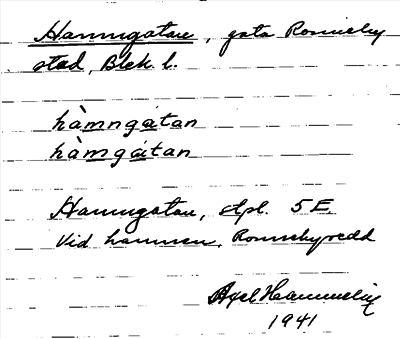 Hamngatan, gata Ronneby
stad, Blek. l.
hàmngatan
hàmgatan
Hamngatan, dpl. 5 E.
Vid hamnen, Ronnebyredd
Axel
1941